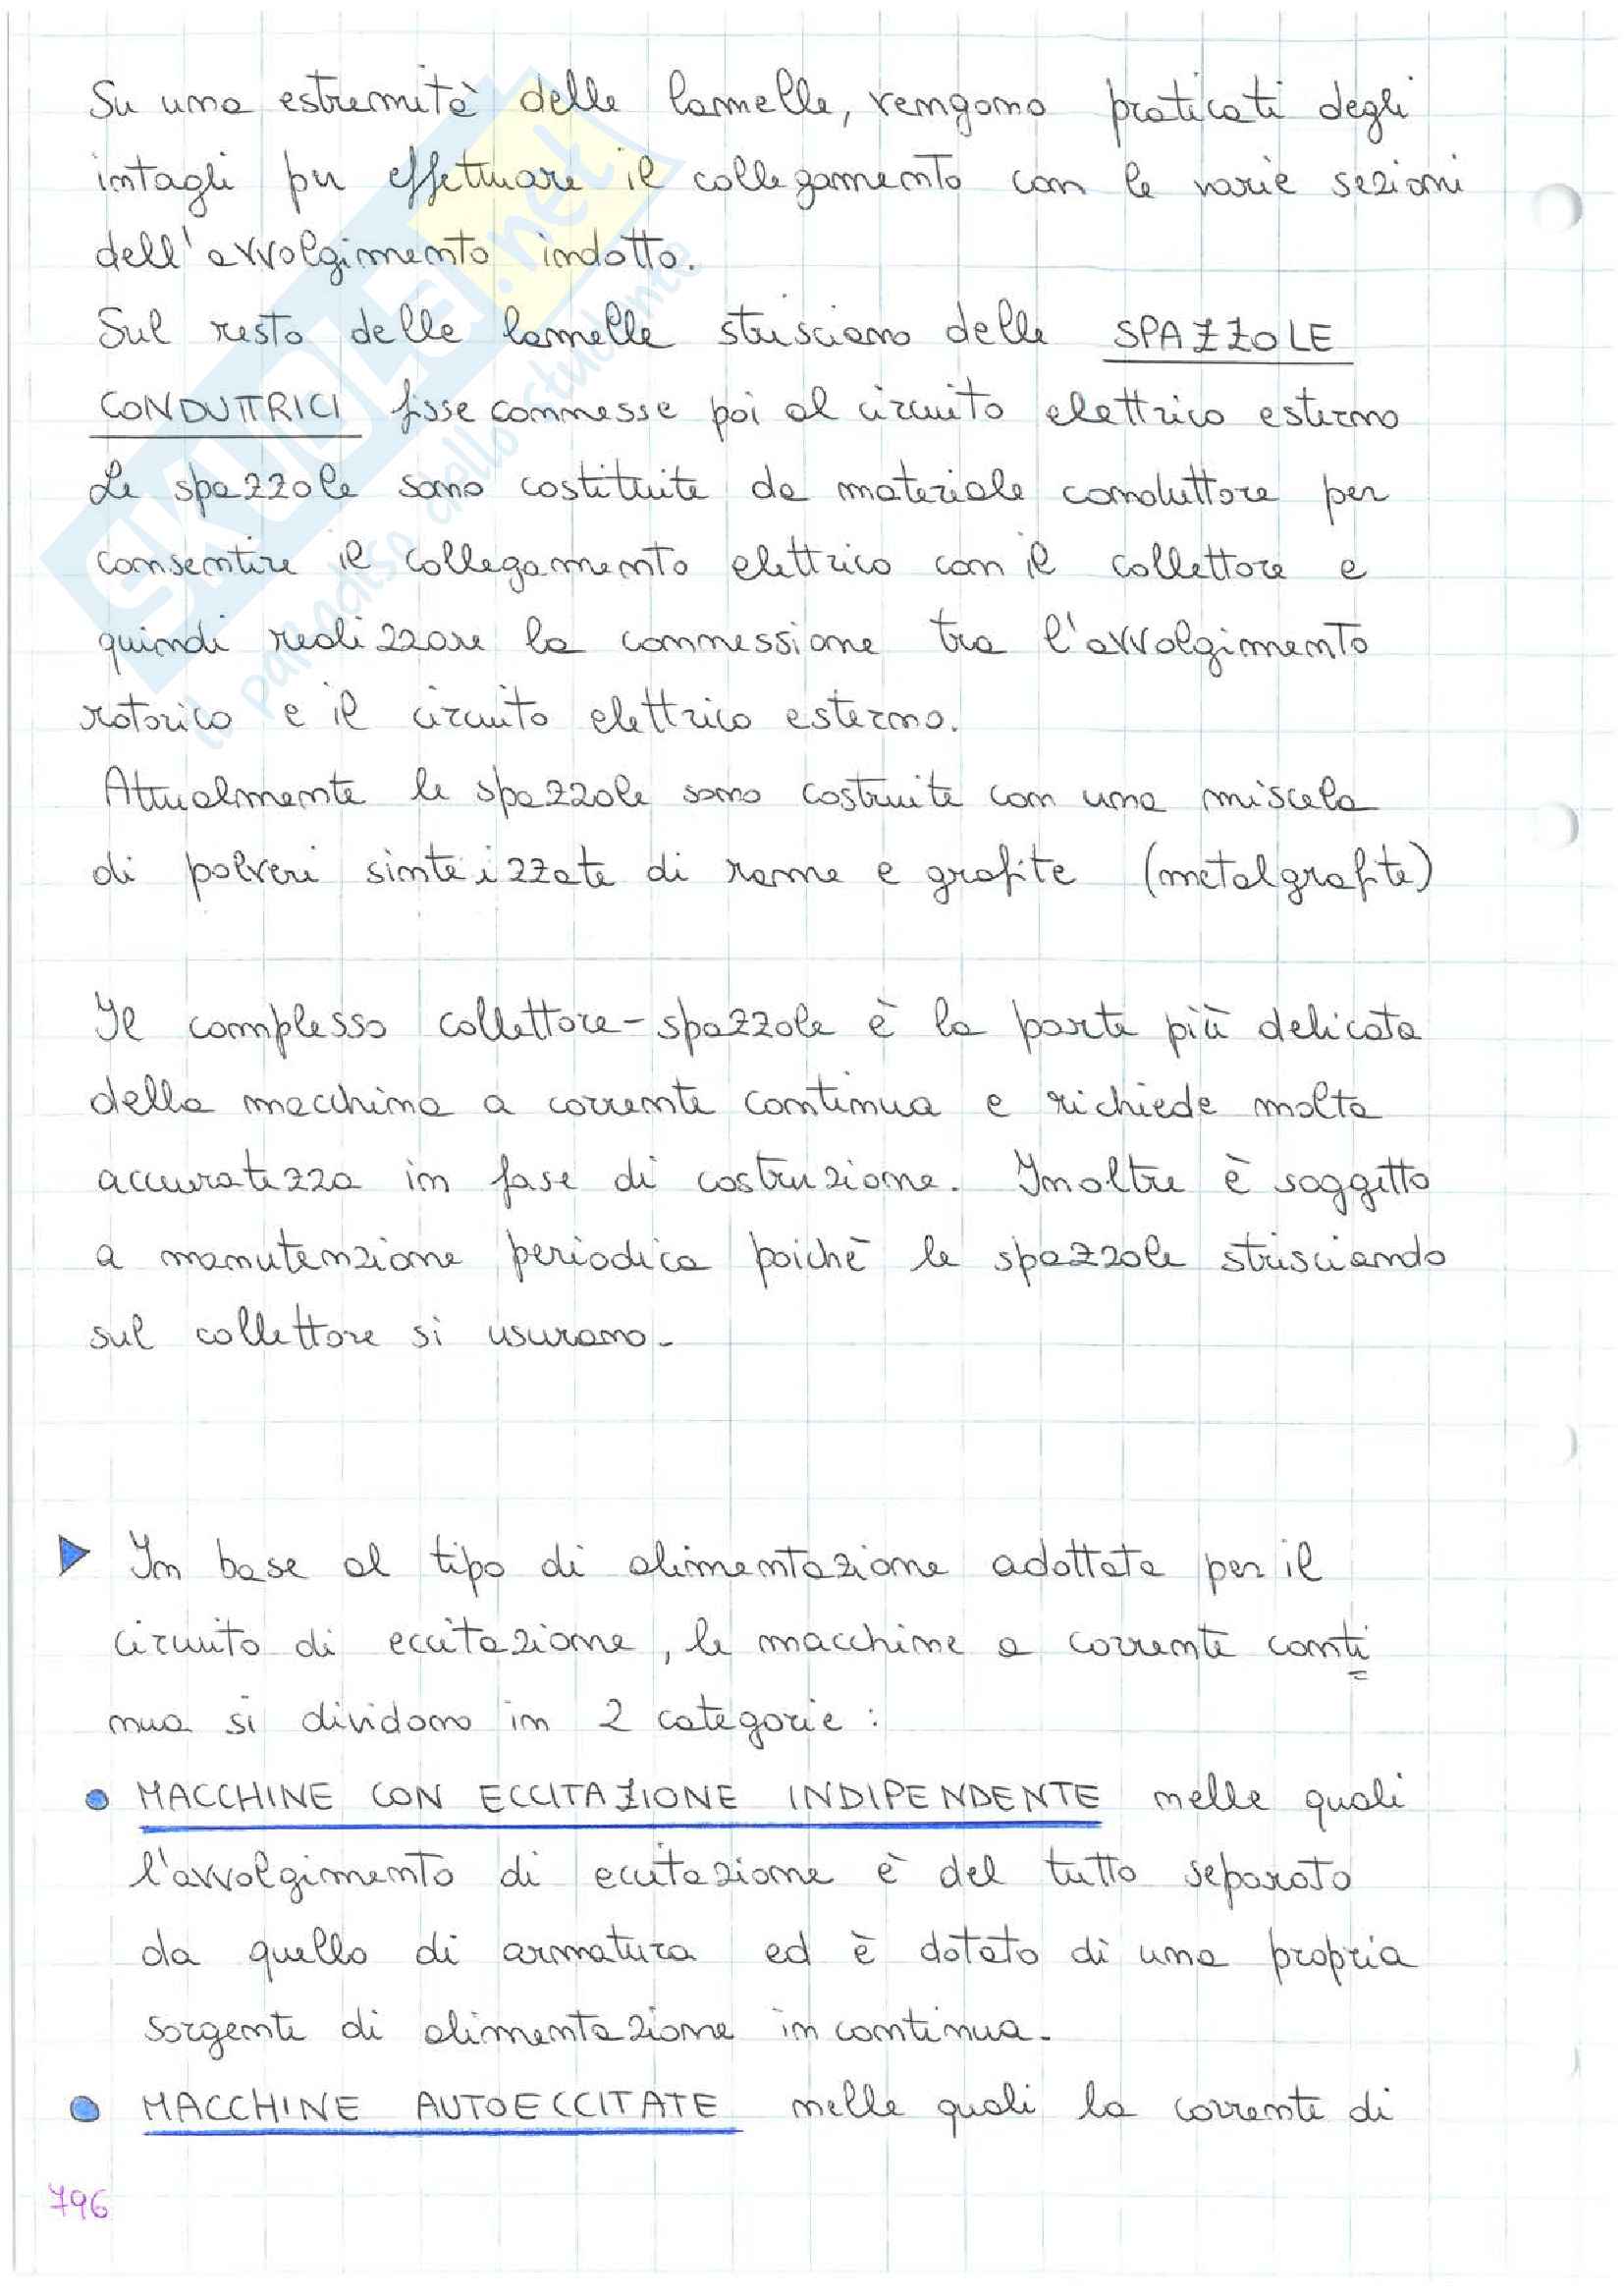 Su una estremità delle lamelle, vengono praticati degli
intagli per effettuare il collegamento con le varie sezioni
dell'avvolgimento indotto.
Sul resto delle lamelle strisciano delle SPAZZOLE
CONDUTTRICI fisse connesse poi al circuito elettrico esterno
Le spazzole sono costituite da materiale conduttore per
consentire il collegamento elettrico con il collettore e
quindi realizzare la connessione tra l'avvolgimento
rotorico e il circuito elettrico esterno.
Attualmente le spazzole sono costruite con una miscela
di polveri sinteizzate di rame e grafite (metalgrafite)
Il complesso collettore-spazzole è la parte più delicata
della macchina a corrente continua e richiede molta
accuratezza in fase di costruzione. Inoltre è soggetto
a manutenzione periodica poichè le spazzole strisciando
sul collettore si usurano.
In base al tipo di alimentazione adottata per il
circuito di eccitazione, le macchine a corrente conti
nua si dividono in 2 categorie:
• MACCHINE CON ECCITAZIONE INDIPENDENTE nelle quali
l'avvolgimento di eccitazione è del tutto separato
da quello di armatura ed è dotato di una propria
sorgente di alimentazione in continua.
• MACCHINE AUTOECCITATE nelle quali la corrente di
796
SKUOLA.net
il paradiso dello studente